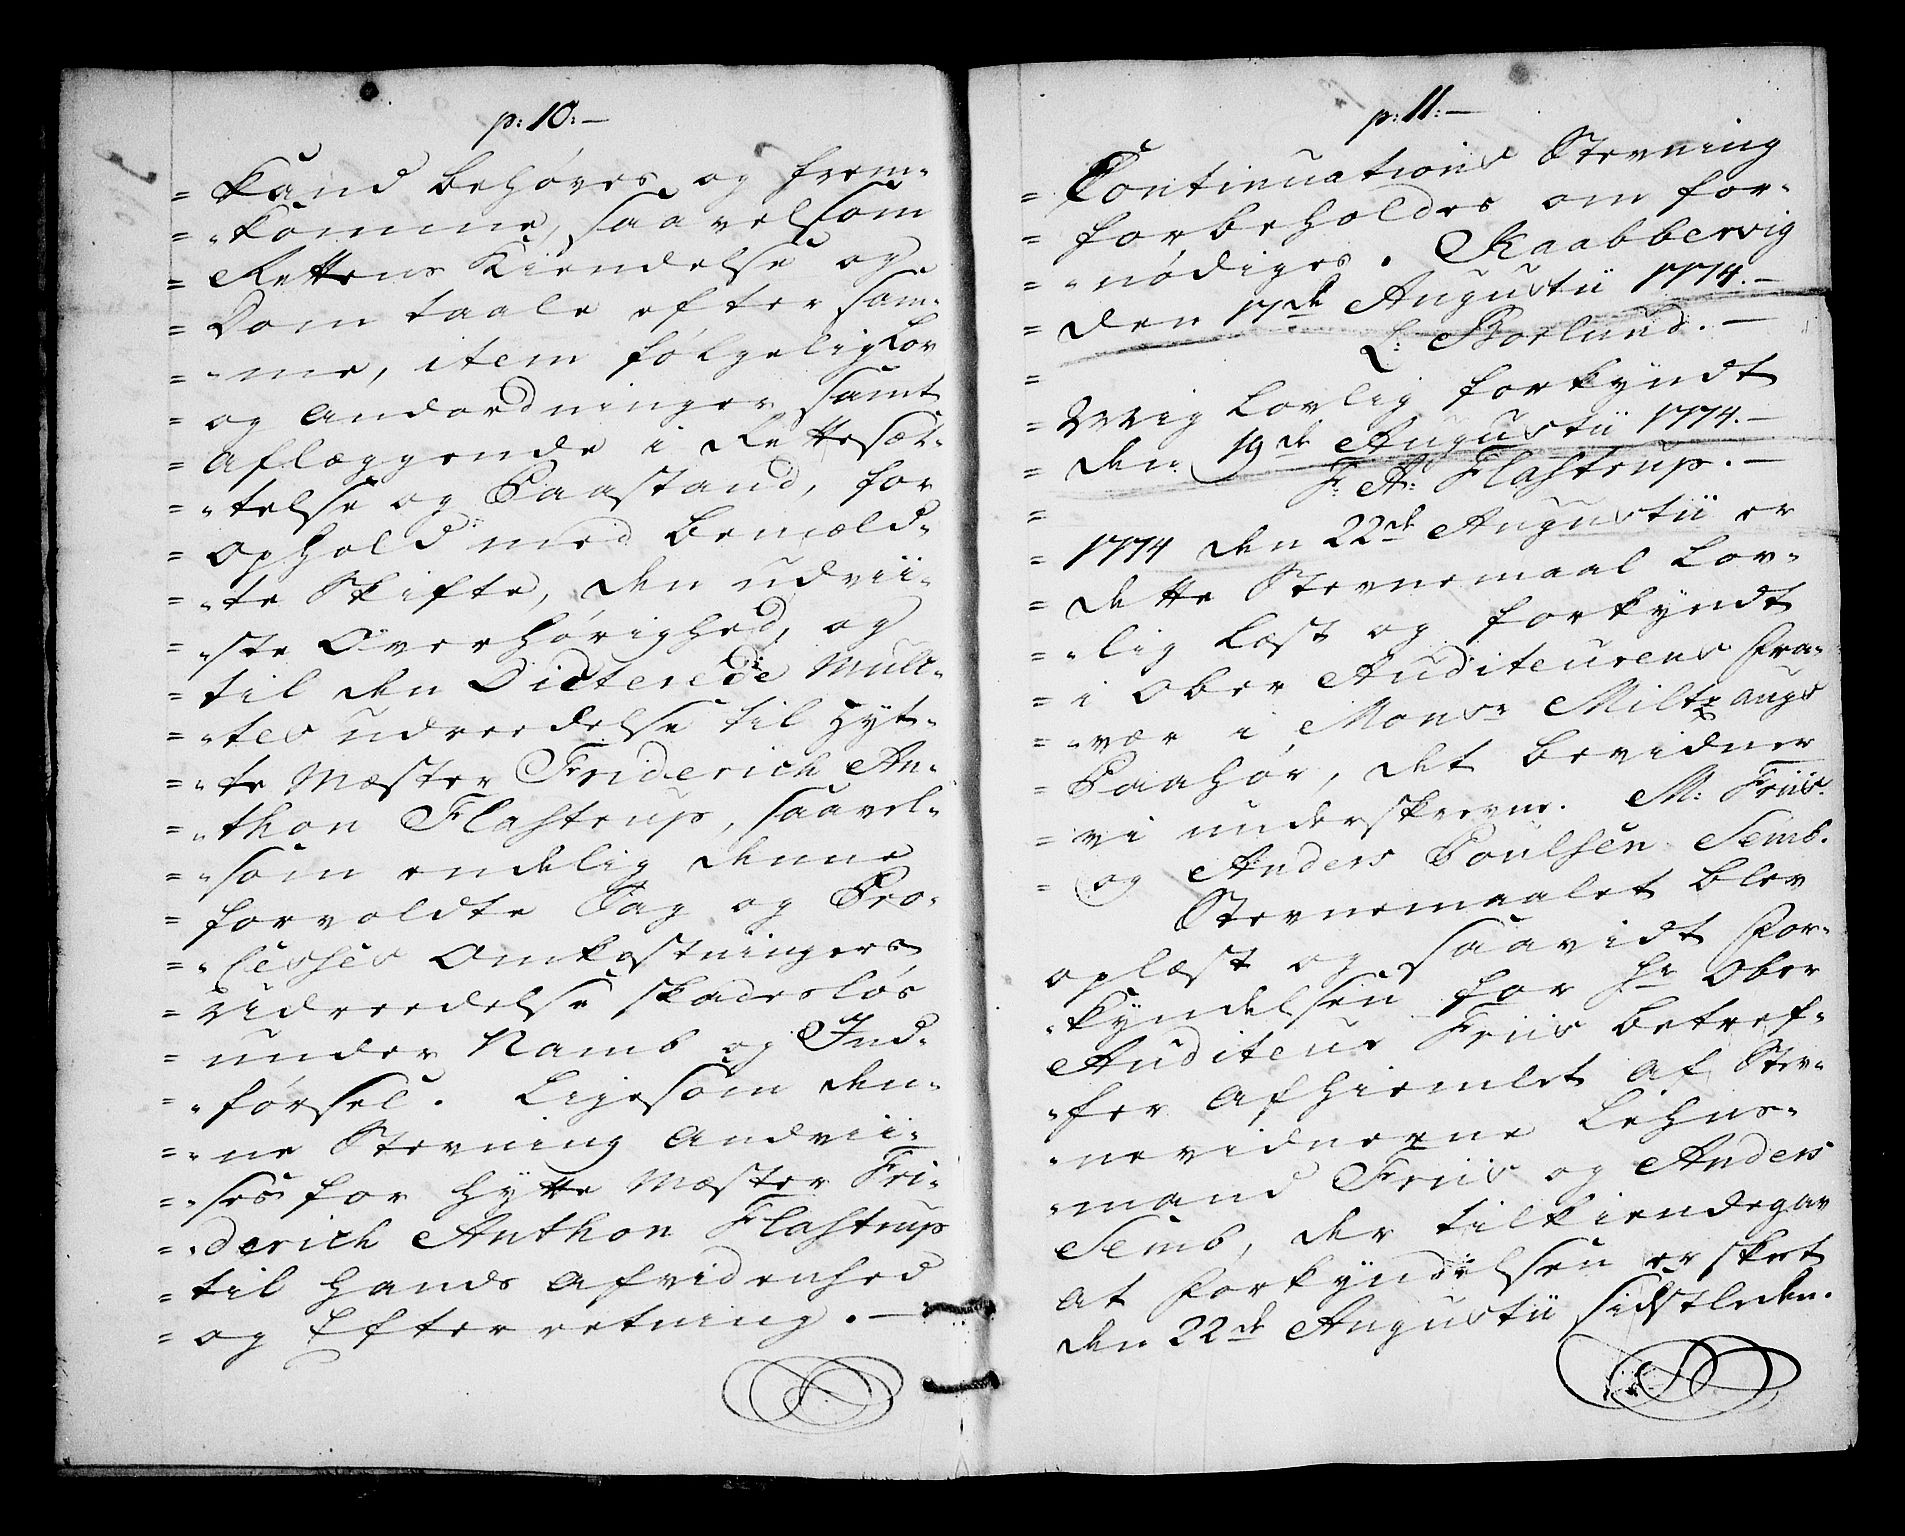 p: 10: —
= kand behøves og frem-
= „komme, saavelsom
= Rettens Kiendelse og
= Dom taale efter sam-
= „me, item følgelig Lov
= og Anordninger samt
= aflæggende i Rettesæt-
= „telse og Paastand, for
= Ophold med bemæld-
= „te Skifte, den udvii-
= „ste Overhørighed, og
= til den Dicterede Mulc-
= „tes udreedelse til Hyt-
= „te Mæster Friderich An-
= „thon Flastrup, saavel-
= „som endelig denne
= forvoldte Sag og Pro-
= „cesses Omkostningers
= Udreedelse skadesløs
= under Namb og Ind-
= „førsel. Ligesom den-
= „ne Stevning Andvii-
= „ses for Hytte Mæster Fri-
= „derich Anthon Flastrup
= til Hands Afvidenhed
= og Efterretning. —
p: 11: —
= Continuations Stevning
= forbeholdes om for-
= „nødiges. Kaabbervig
= den 17de Augustii 1774. —
L: Borlund. —
=
= Mig Lovlig forkyndt
= den 19de Augustii 1774. —
F: A: Flastrup. —
=
= 1774 den 22de Augustii er
= dette Stevnemaal Lov-
= „lig Læst og forkyndt
= i Ober Auditeurens Fra-
= „vær i Monsr Miltzaugs
= Paahør, det bevidner
= vi underskrevne. M: Friis.
= og Anders Poulsen Semb.
Stevnemaalet blev
oplæst og saavidt For-
„kyndelsen for Hr Ober
Auditeur Friis betref-
„fer afhiemlet af Stev-
„nevidnerne Lehns-
„mand Friis og Anders
Semb, der tilkiendegav
at Forkyndelsen er skeet
den 22de Augustii sidstleden.